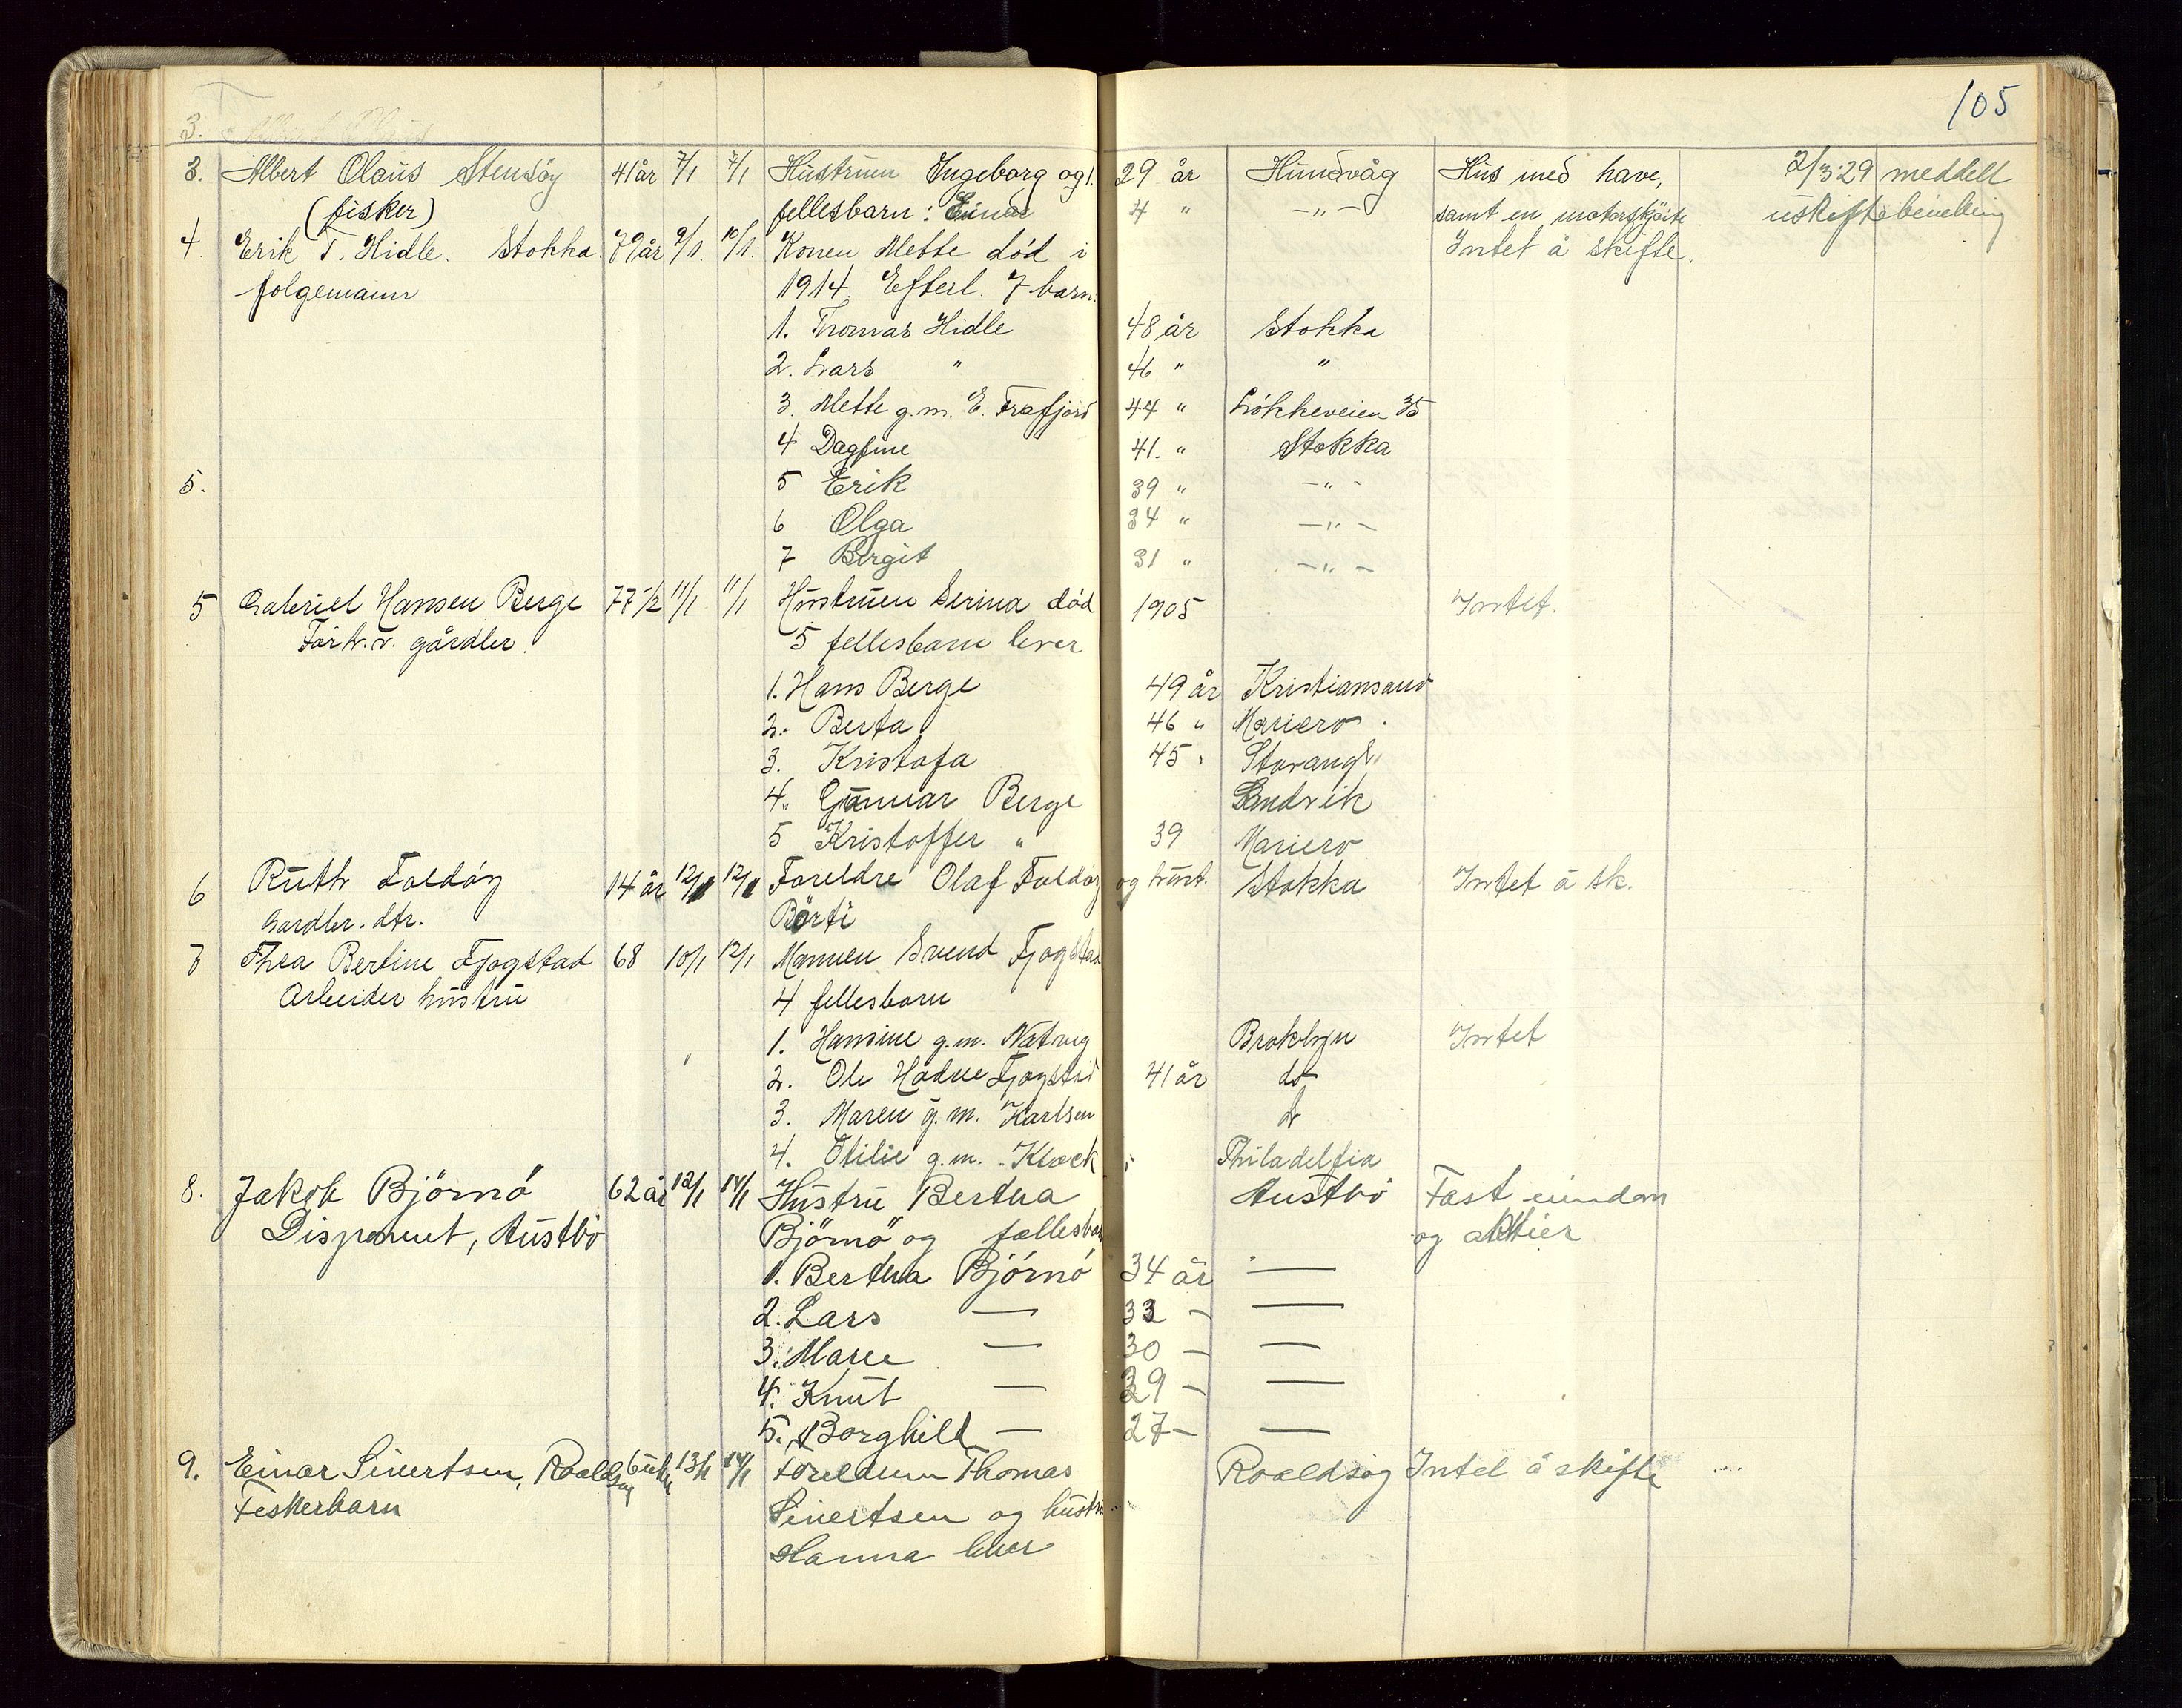 105
3.
3. Albert Olaus Stensøy 41 år 7/1 7/1 Hustruen Ingeborg og 1. 29 år Hundvåg Hus med have, 2/3.29 meddelt
(fisker) fellesbarn: Einar 4 " -"- samt en motorskøite uskiftebevilling
4. Erik T. Hidle. Stokka. 79 år 9/1. 10/1. Konen Mette død i Intet å skifte.
folgemann 1914. Efterl. 7 barn:
1. Thomas Hidle 48 år Stokka
2. Lars " 46 " "
3. Mette g.m. E. Frafjord 44 " Løkkeveien 35
4 Dagfine 41. " Stokka
5. 5 Erik 39 " -"-
6 Olga 34 " -"-
7 Bergit 31 " -"-
5 Gabriel Hansen Berge 77 1/2 11/1 11/1 Hustruen Serina død 1905 Intet.
Forh.v. gårdbr. 5 fellesbarn lever
1. Hans Berge 49 år Kristiansand
2. Berta 46 " Mariero
3. Kristofa 45 " Stavang.
4. Gunnar Berge Sandvik
5 Kristoffer " 39 Mariero
6 Ruth Foldøy 14 år 12/1 12/1 Foreldre Olaf Foldøy og hust. Stokka Intet å sk.
Gardbr. dtr. Børti
7 Thea Bertine Fjogstad 68 10/1 12/1 Mannen Svend Fjogstad
Arbeider hustru 4 fellesbarn
1. Hansine g.m. Natvig Broklyn Intet
2. Ole Hodne Fjogstad 41 år do
3. Maren g.m. Karlsen do
4. Otilie g.m. Klock Philadelfia
8. Jakob Bjørnø 62 år 12/1 14/1 Hustru Bertha Austbø Fast eiendom
Disponent, Austbø Bjørnø og fællesbarn og aktier
1. Bertha Bjørnø 34 år —
2. Lars — 32 - —
3. Marie — 30 - —
4. Knut — 29 - —
5. Borghild — 27 - —
9. Einar Sivertsen, Roaldsøy 6 uker 13/1 14/1 Foreldrene Thomas Roaldsøy Intet å skifte
Fiskerbarn Sivertsen og hustru
Hanna lever